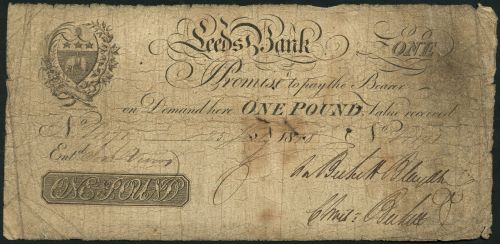 Leeds Bank ONE
I Promise to pay the Bearer
on Demand here ONE POUND, Value received
No 18 No
Entd
ONE POUND
Beckett Blayds & Co
Beckett